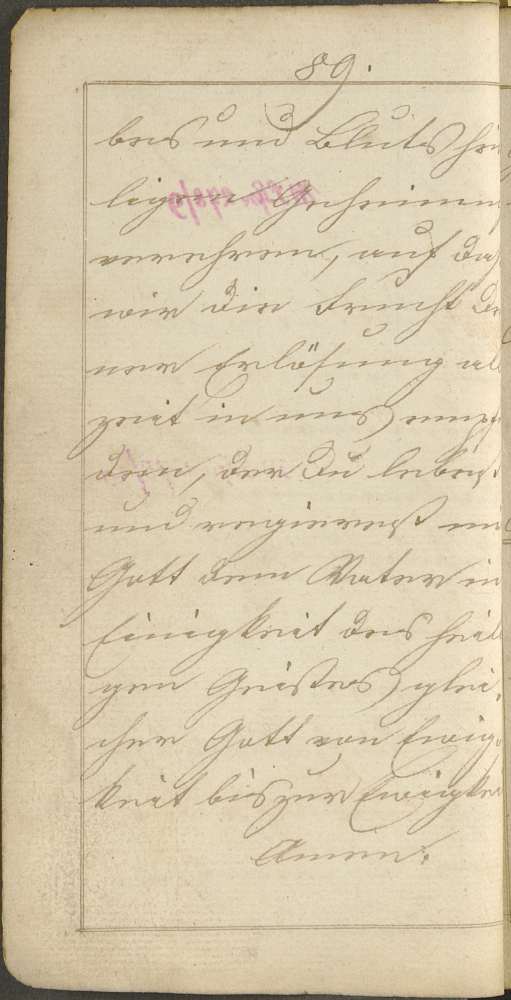 89.
bes und Bluts hei
ligen Geheimni
verehren, auf das
wir die Frucht dei
ner Erlösung al
zeit in uns empfi
den, der du lebest
und regierest mit
Gott dem Vater in
Einigkeit des heili
gen Geistes) glei,
cher Gott von Ewig,
keit bis zur Ewigkei
Amen.